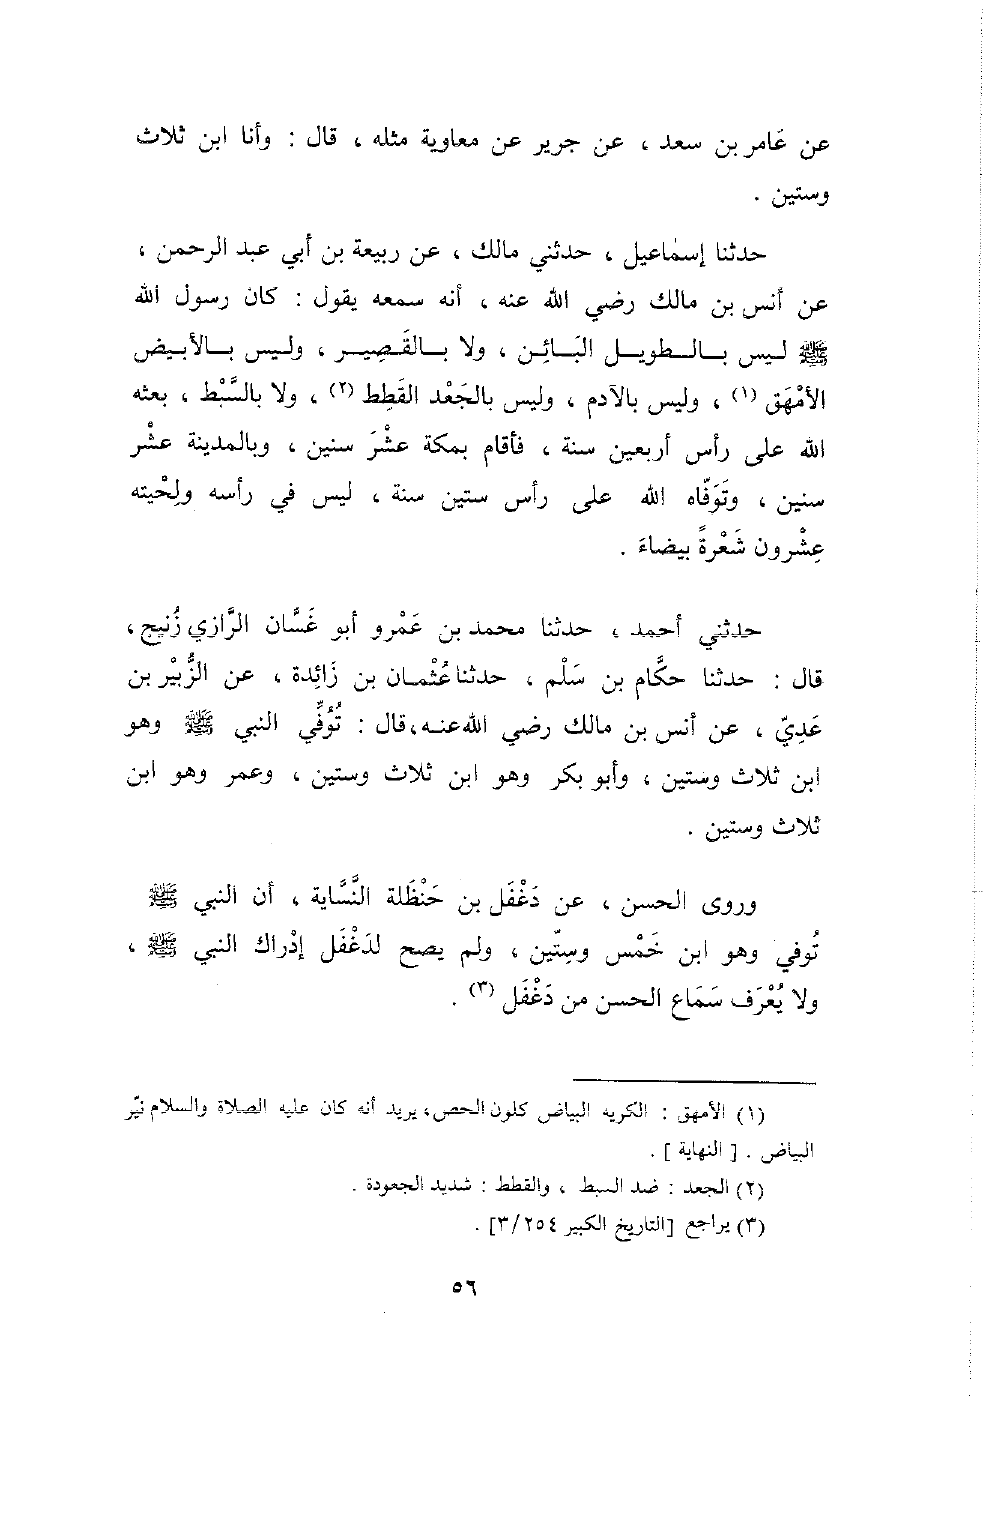 عن عَامر بن سعد ، عن جرير عن معاوية مثله ، قال : وأنا ابن ثلاث
وستين .
حدثنا إسمٰاعيل ، حدثني مالك ، عن ربيعة بن أبي عبد الرحمن ،
عن أنس بن مالك رضي الله عنه ، أنه سمعه يقول : كان رسول الله
ﷺ ليس بـالـطويـل البَـائِـن ، ولا بـالقَـصِيـر ، وليس بـالأبـيض
الأمْهَق (١) ، وليس بالآدم ، وليس بالجَعْد القَطِط (٢) ، ولا بالسَّبْط ، بعثه
الله على رأس أربعين سنة ، فأقام بمكة عشْرَ سنين ، وبالمدينة عشْر
سنين ، وتَوَفّاه الله على رأس ستين سنة ، ليس في رأسه ولِحْيته
عِشْرون شَعْرةً بيضاءَ .
حدثني أحمد ، حدثنا محمد بن عَمْرو أبو غَسَّان الرَّازي زُنيج ،
قال : حدثنا حكَّام بن سَلْم ، حدثنا عُثْمـان بن زَائِدة ، عن الزُّبَيْر بن
عَدِيّ ، عن أنس بن مالك رضي الله عنـه ، قال : تُوُفِّي النبي ﷺ وهو
ابن ثلاث وستين ، وأبو بكر وهو ابن ثلاث وستين ، وعمر وهو ابن
ثلاث وستين .
وروى الحسن ، عن دَغْفَل بن حَنْظَلة النَّسَّابة ، أن النبي ﷺ
تُوفي وهو ابن خَمْس وسِتّين ، ولم يصح لدَغْفَل إدْراك النبي ﷺ ،
ولا يُعْرَف سَمَاع الحسن من دَغْفَل (٣) .
(١) الأمهق : الكريه البياض كلون الجص، يريد أنه كان عليه الصلاة والسلام نيّر
البياض . [ النهاية ] .
(٢) الجعد : ضد السبط ، والقطط : شديد الجعودة .
(٣) يراجع [التاريخ الكبير ٣/٢٥٤] .
٥٦